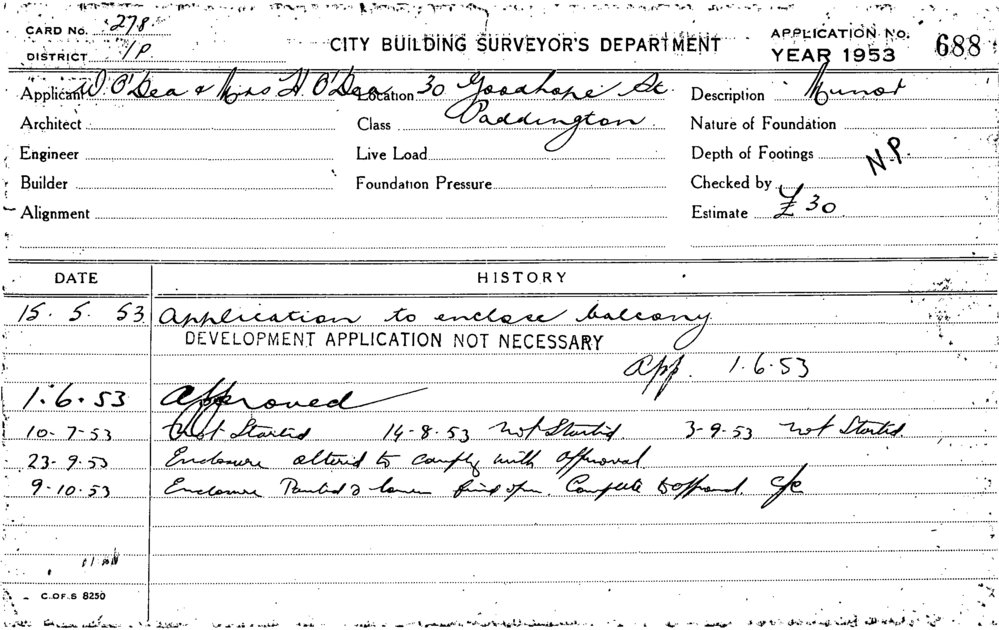 CARD No. 278
DISTRICT 1P.
CITY BUILDING SURVEYOR'S DEPARTMENT
APPLICATION No. 688
YEAR 1953
Applicant W. O'Dea & Mrs H O'Dea Location 30 Goodhope St. Description Minor
Architect Class Paddington Nature of Foundation
Engineer Live Load Depth of Footings N.P.
Builder Foundation Pressure Checked by
Alignment Estimate £ 30
DATE HISTORY
15. 5. 53 Application to enclose balcony
DEVELOPMENT APPLICATION NOT NECESSARY
App. 1.6.53
1.6.53 Approved
10-7-53 Not Started 14-8-53 Not Started 3-9-53 Not Started
23-9-53 Enclosure altered to comply with approval
9-10-53 Enclosure Painted & Complete to approval. C/C
C.OF.S 8250